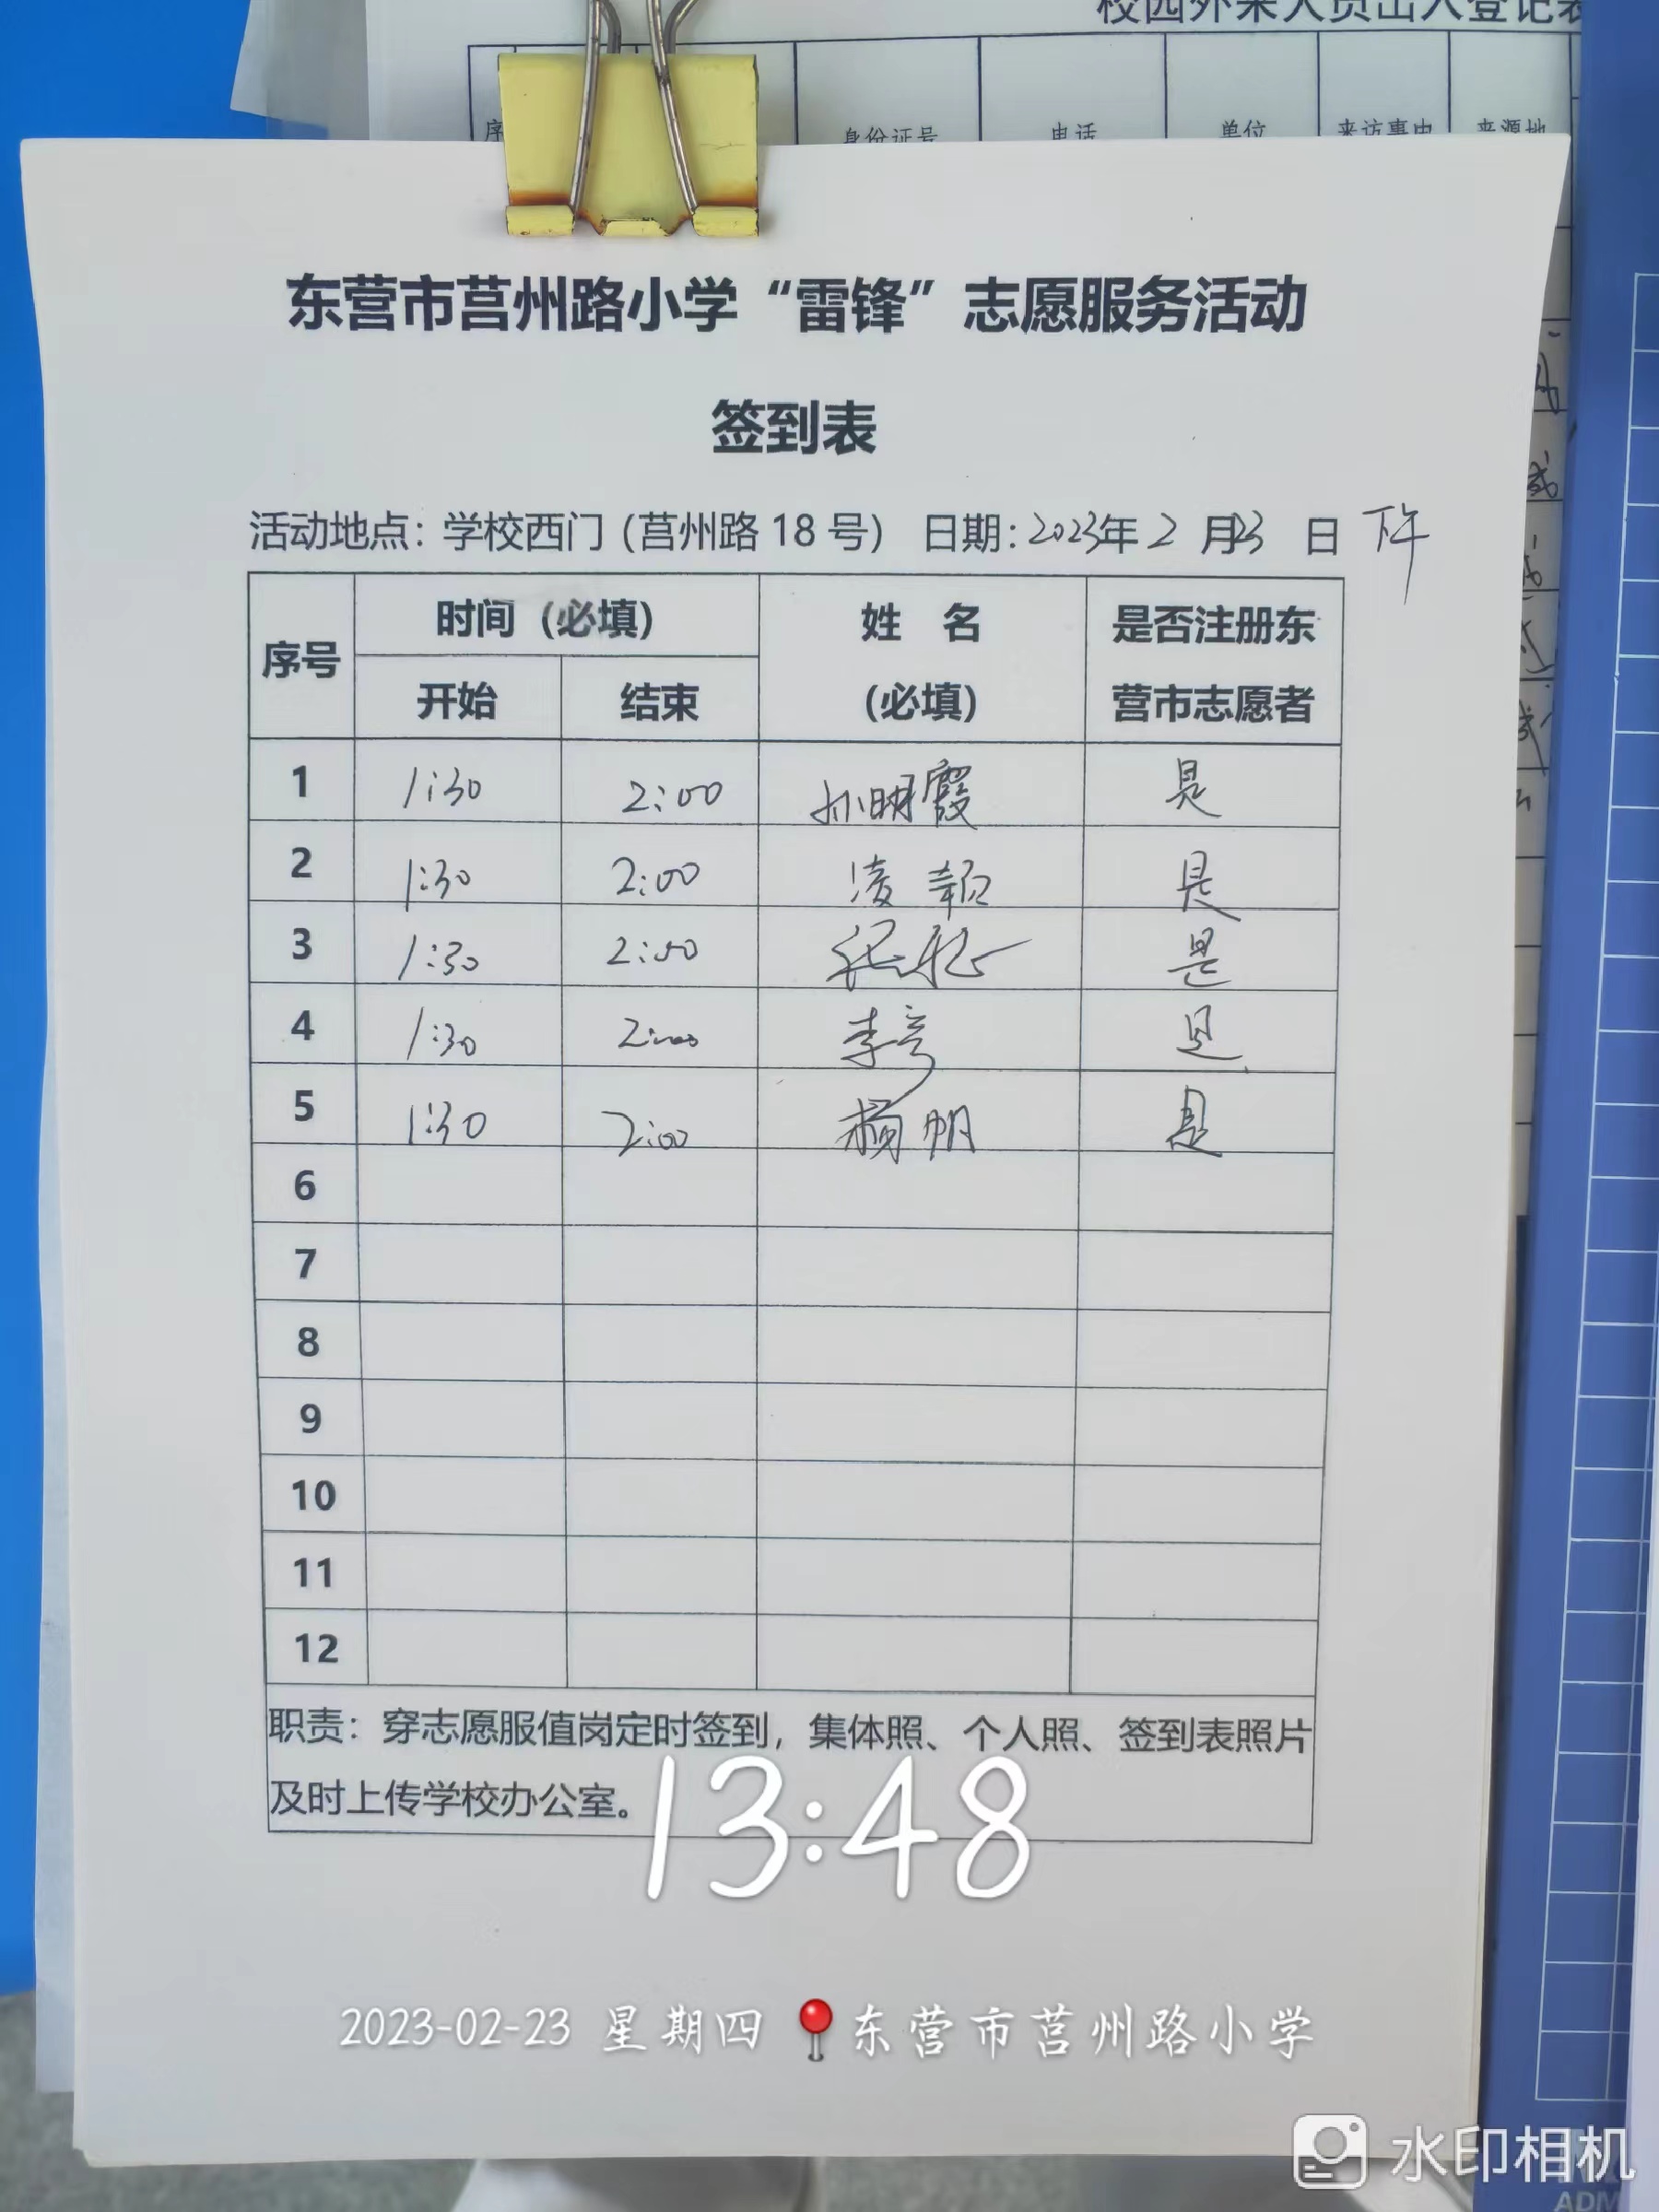 校园外来人员出入登记表
序 身份证号 电话 单位 来访事由 来源地
东营市莒州路小学“雷锋”志愿服务活动
签到表
活动地点：学校西门（莒州路 18 号） 日期：2023年 2 月 23 日 下午
序号 时间（必填） 姓 名（必填） 是否注册东营市志愿者
开始 结束
1 1:30 2:00 孙明霞 是
2 1:30 2:00 凌 是
3 1:30 2:00 张 是
4 1:30 2:00 李彦 是
5 1:30 2:00 杨帆 是
6
7
8
9
10
11
12
职责：穿志愿服值岗定时签到，集体照、个人照、签到表照片
及时上传学校办公室。
13:48
2023-02-23 星期四 东营市莒州路小学
水印相机
ADM